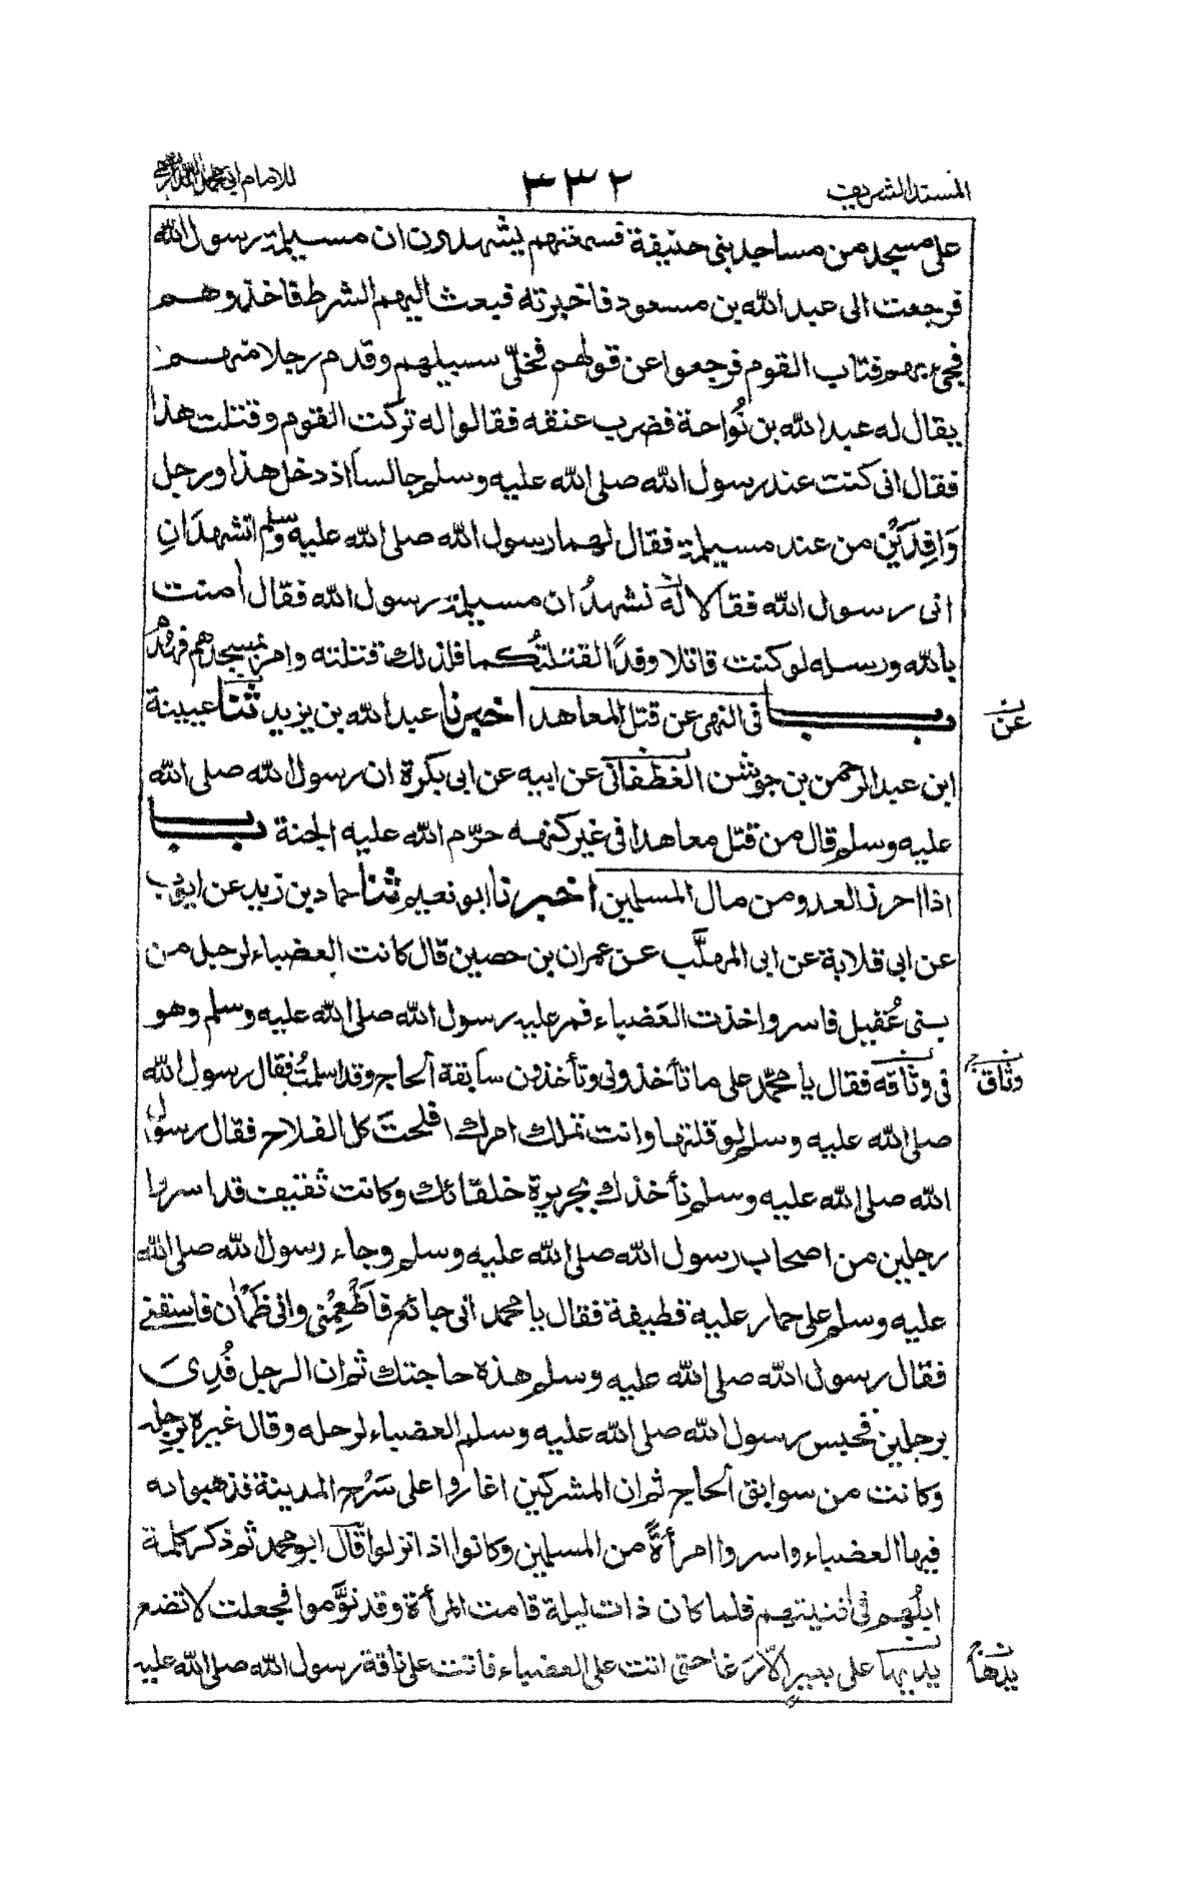 المسند الشريف ٣٣٢ للامام ابى محمد
على مسجد من مساجد بنى حنيفة فسمعتهم يشهدون ان مسيلمة رسول الله
فرجعت الى عبد الله بن مسعود فاخبرته فبعث اليهم الشرط فاخذوهم
فجىء بهم فتاب القوم فرجعوا عن قولهم فخلّى سبيلهم وقدم رجلا منهم
يقال له عبد الله بن نُواحة فضرب عنقه فقالوا له تركت القوم وقتلت هذا
فقال انى كنت عند رسول الله صلى الله عليه وسلم جالساً اذ دخل هذا ورجل
وَافِدَيْنِ من عند مسيلمة فقال لهما رسول الله صلى الله عليه وسلم اتشهدَانِ
انى رسول الله فقالا له نشهدُ ان مسيلمة رسول الله فقال اٰمنت
بالله ورسله لو كنت قاتلا وفدًا لقتلتُكما فلذلك قتلته وامر بمسجدهم فهُدم
بــاب فى النهى عن قتل المعاهد اخبرنا عبد الله بن يزيد ثنا عيينة
عن
ابن عبد الرحمن بن جوشن الغطفانى عن ابيه عن ابى بكرة ان رسول الله صلى الله
عليه وسلم قال من قتل معاهدا فى غير كنهه حرّم الله عليه الجنة بــاب
اذا احرز العدو من مال المسلمين اخبرنا ابو نعيم ثنا حماد بن زيد عن ايوب
عن ابى قلابة عن ابى المهلَّب عن عمران بن حصين قال كانت العضباء لرجل من
بنى عُقيل فاسر واخذت العَضباء فمر عليه رسول الله صلى الله عليه وسلم وهو
فى وثاقه فقال يا محمّد على ما تأخذونى وتأخذون سابقة الحاج وقد اسلمتُ فقال رسول الله
وثاق
صلى الله عليه وسلم لو قلتها وانت تملك امرك افلحتَ كل الفلاح فقال رسول
الله صلى الله عليه وسلم نأخذك بجريرة حلفائك وكانت ثقيف قد اسروا
رجلين من اصحاب رسول الله صلى الله عليه وسلم وجاء رسول الله صلى الله
عليه وسلم على حمار عليه قطيفة فقال يا محمد انى جائع فاَطْعِمْنى وانى ظَمْاٰن فاسقنى
فقال رسول الله صلى الله عليه وسلم هذه حاجتك ثم ان الرجل فُدِىَ
برجلين فحبس رسول الله صلى الله عليه وسلم العضباء لرحله وقال غيره برجله
وكانت من سوابق الحاج ثم ان المشركين اغاروا على سَرْح المدينة فذهبوا به
فيها العضباء واسروا امرأةً من المسلمين وكانوا اذا نزلوا قال ابو محمد ثم ذكر كلمة
ابلُهم فى افنيتهم فلما كان ذات ليلة قامت المرأة وقد نوَّموا فجعلت لا تضع
يديها على بعير الّا رَغا حتى اتت على العضباء فاتت على ناقة رسول الله صلى الله عليه
يدها